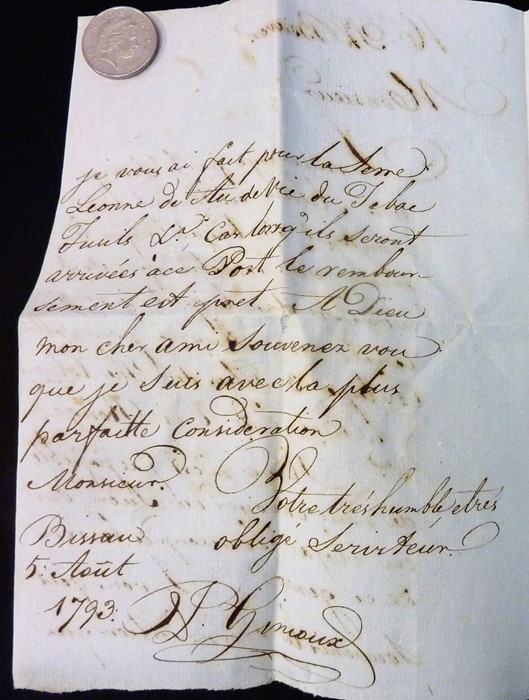 je vous ai fait pour la Serre
Leonne de Au de Vie du Tebac
Fusils &.ª Car lorsq'ils seront
arrivées à cé Port le rembour-
sement est pret. A Dieu
mon cher ami souvenez vou
que je suis avec la plus
parfaitte Consideration
Monsieur.
Votre trés humble et trés
obligé Serivteur.
Bissau
5. Août
1793.
Gineoux